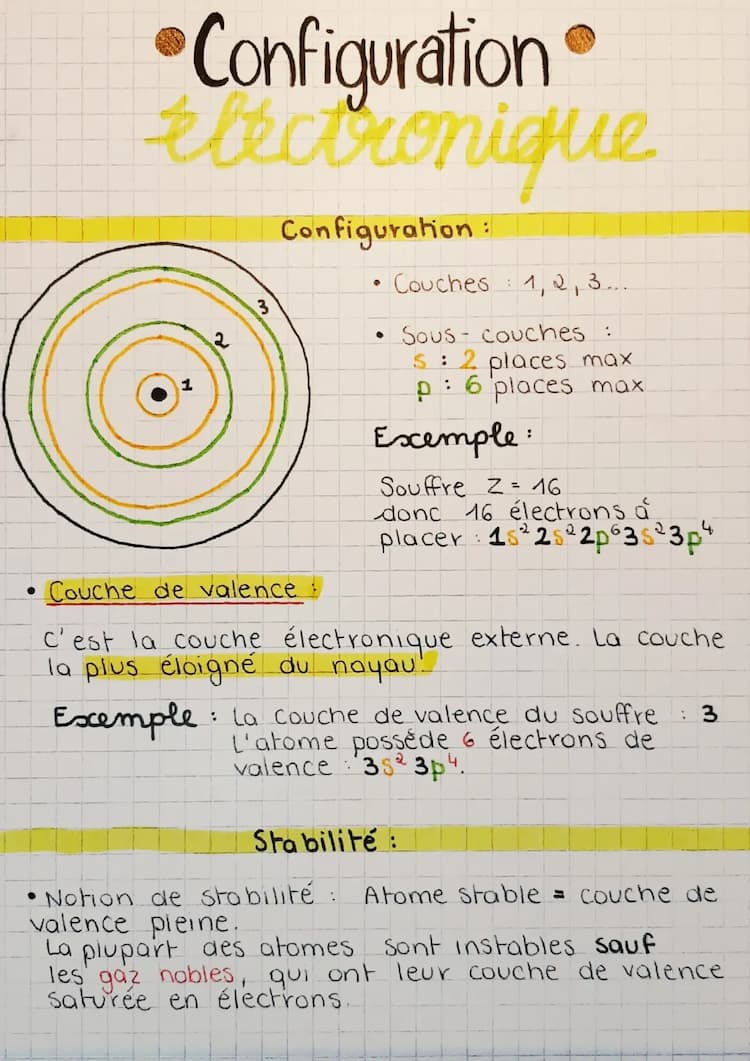 Configuration
électronique
Configuration :
3
2
1
• Couches : 1, 2, 3...
• Sous-couches :
s : 2 places max
p : 6 places max
Exemple :
Souffre Z = 16
donc 16 électrons à
placer : 1s² 2s² 2p⁶ 3s² 3p⁴
• Couche de valence :
C'est la couche électronique externe. La couche
la plus éloigné du noyau.
Exemple : La couche de valence du souffre : 3
L'atome possède 6 électrons de
valence : 3s² 3p⁴.
Stabilité :
• Notion de stabilité : Atome stable = couche de
valence pleine.
La plupart des atomes sont instables sauf
les gaz nobles, qui ont leur couche de valence
saturée en électrons.